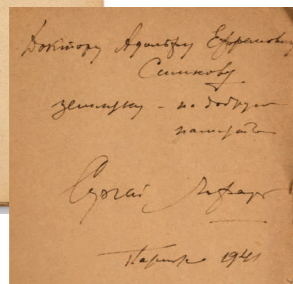 Доктору Адольфу Ефремовичу
земляку – на добрую
память
Сергей Лифарь
Париж 1941